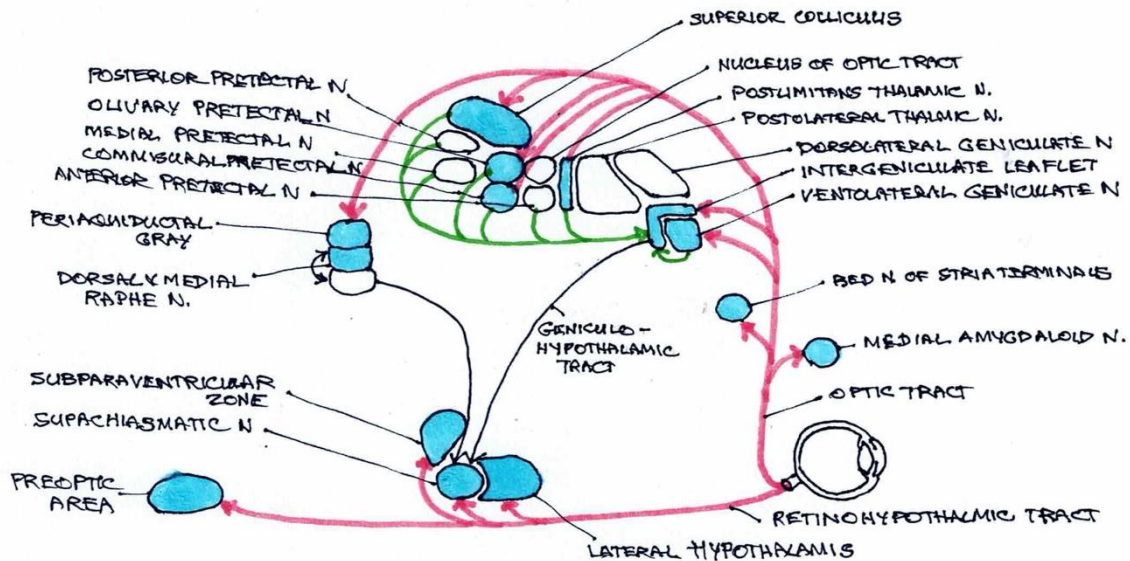 SUPERIOR COLLICULIS
NUCLEUS OF OPTIC TRACT
POSTLIMITANS THALAMIC N.
POSTOLATERAL THALMIC N.
DORSOLATERAL GENICULATE N
INTERGENICULATE LEAFLET
VENTOLATERAL GENICULATE N
POSTERIOR PRETECTAL N
OLIVARY PRETECTAL N
MEDIAL PRETECTAL N
COMMISURAL PRETECTAL N
ANTERIOR PRETECTAL N
PERIAQUIDUCTAL
GRAY
DORSAL & MEDIAL
RAPHE N.
GENICULO-
HYPOTHALAMIC
TRACT
BED N OF STRIA TERMINALIS
MEDIAL AMYGDALOID N.
OPTIC TRACT
SUBPARAVENTRICULAR
ZONE
SUPACHIASMATIC N
PREOPTIC
AREA
RETINOHYPOTHALMIC TRACT
LATERAL HYPOTHALAMIS